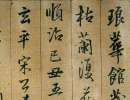 琅華館
枯蘭復
順治己丑五
玄平宋